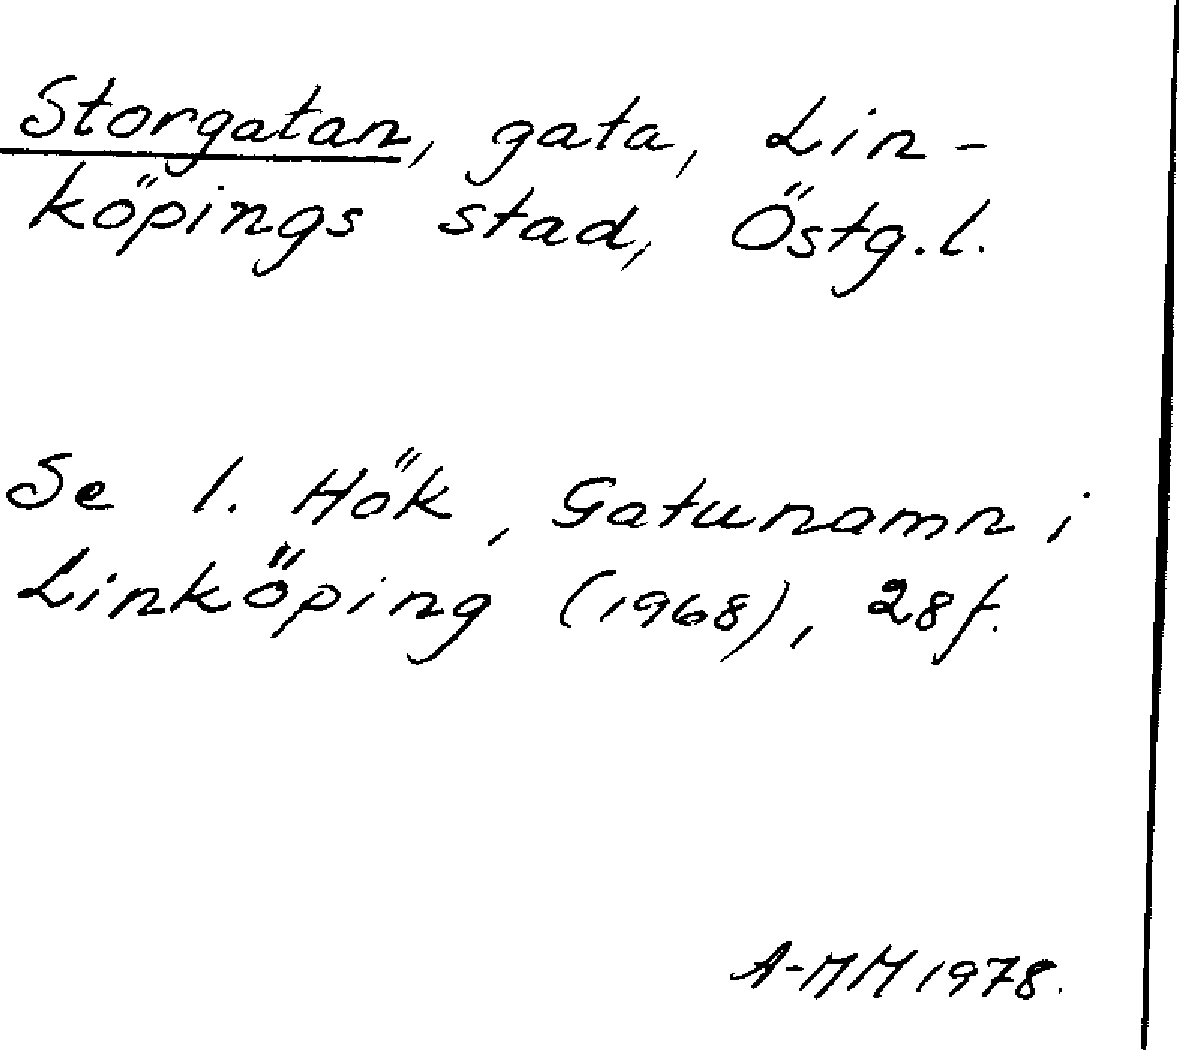 Storgatan, gata, Lin-
köpings stad, Östg.l.
Se I. Hök, Gatunamn i
Linköping (1968), 28f.
A-MM 1978.